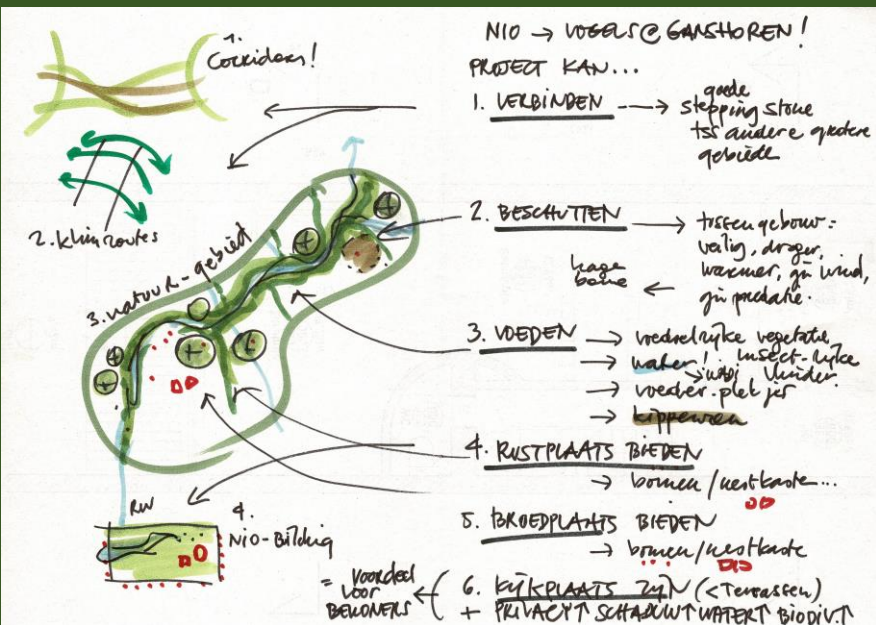 1.
Corridors!
2. klimroutes
3. natuur-gebied
RW
4.
NIO-Building
NIO → VOGELS@GANSHOREN!
PROJECT KAN...
1. VERBINDEN → goede
stepping stone
tss andere grotere
gebiede
2. BESCHUTTEN → tussen gebouw:
veilig, droger,
warmer, gn wind,
gn predatie.
hage
bome
3. VOEDEN → voedselrijke vegetatie
→ water! insect-rijke
vlinder
→ voeder.plekjes
→ kippenren
4. RUSTPLAATS BIEDEN
→ bomen/nestkaste...
5. BROEDPLAATS BIEDEN
→ bomen/nestkaste
6. KIJKPLAATS ZIJN (<Terrassen)
+ PRIVACY↑ SCHADUW↑ WATER↑ BIODIV.↑
= voordeel
voor
BEWONERS